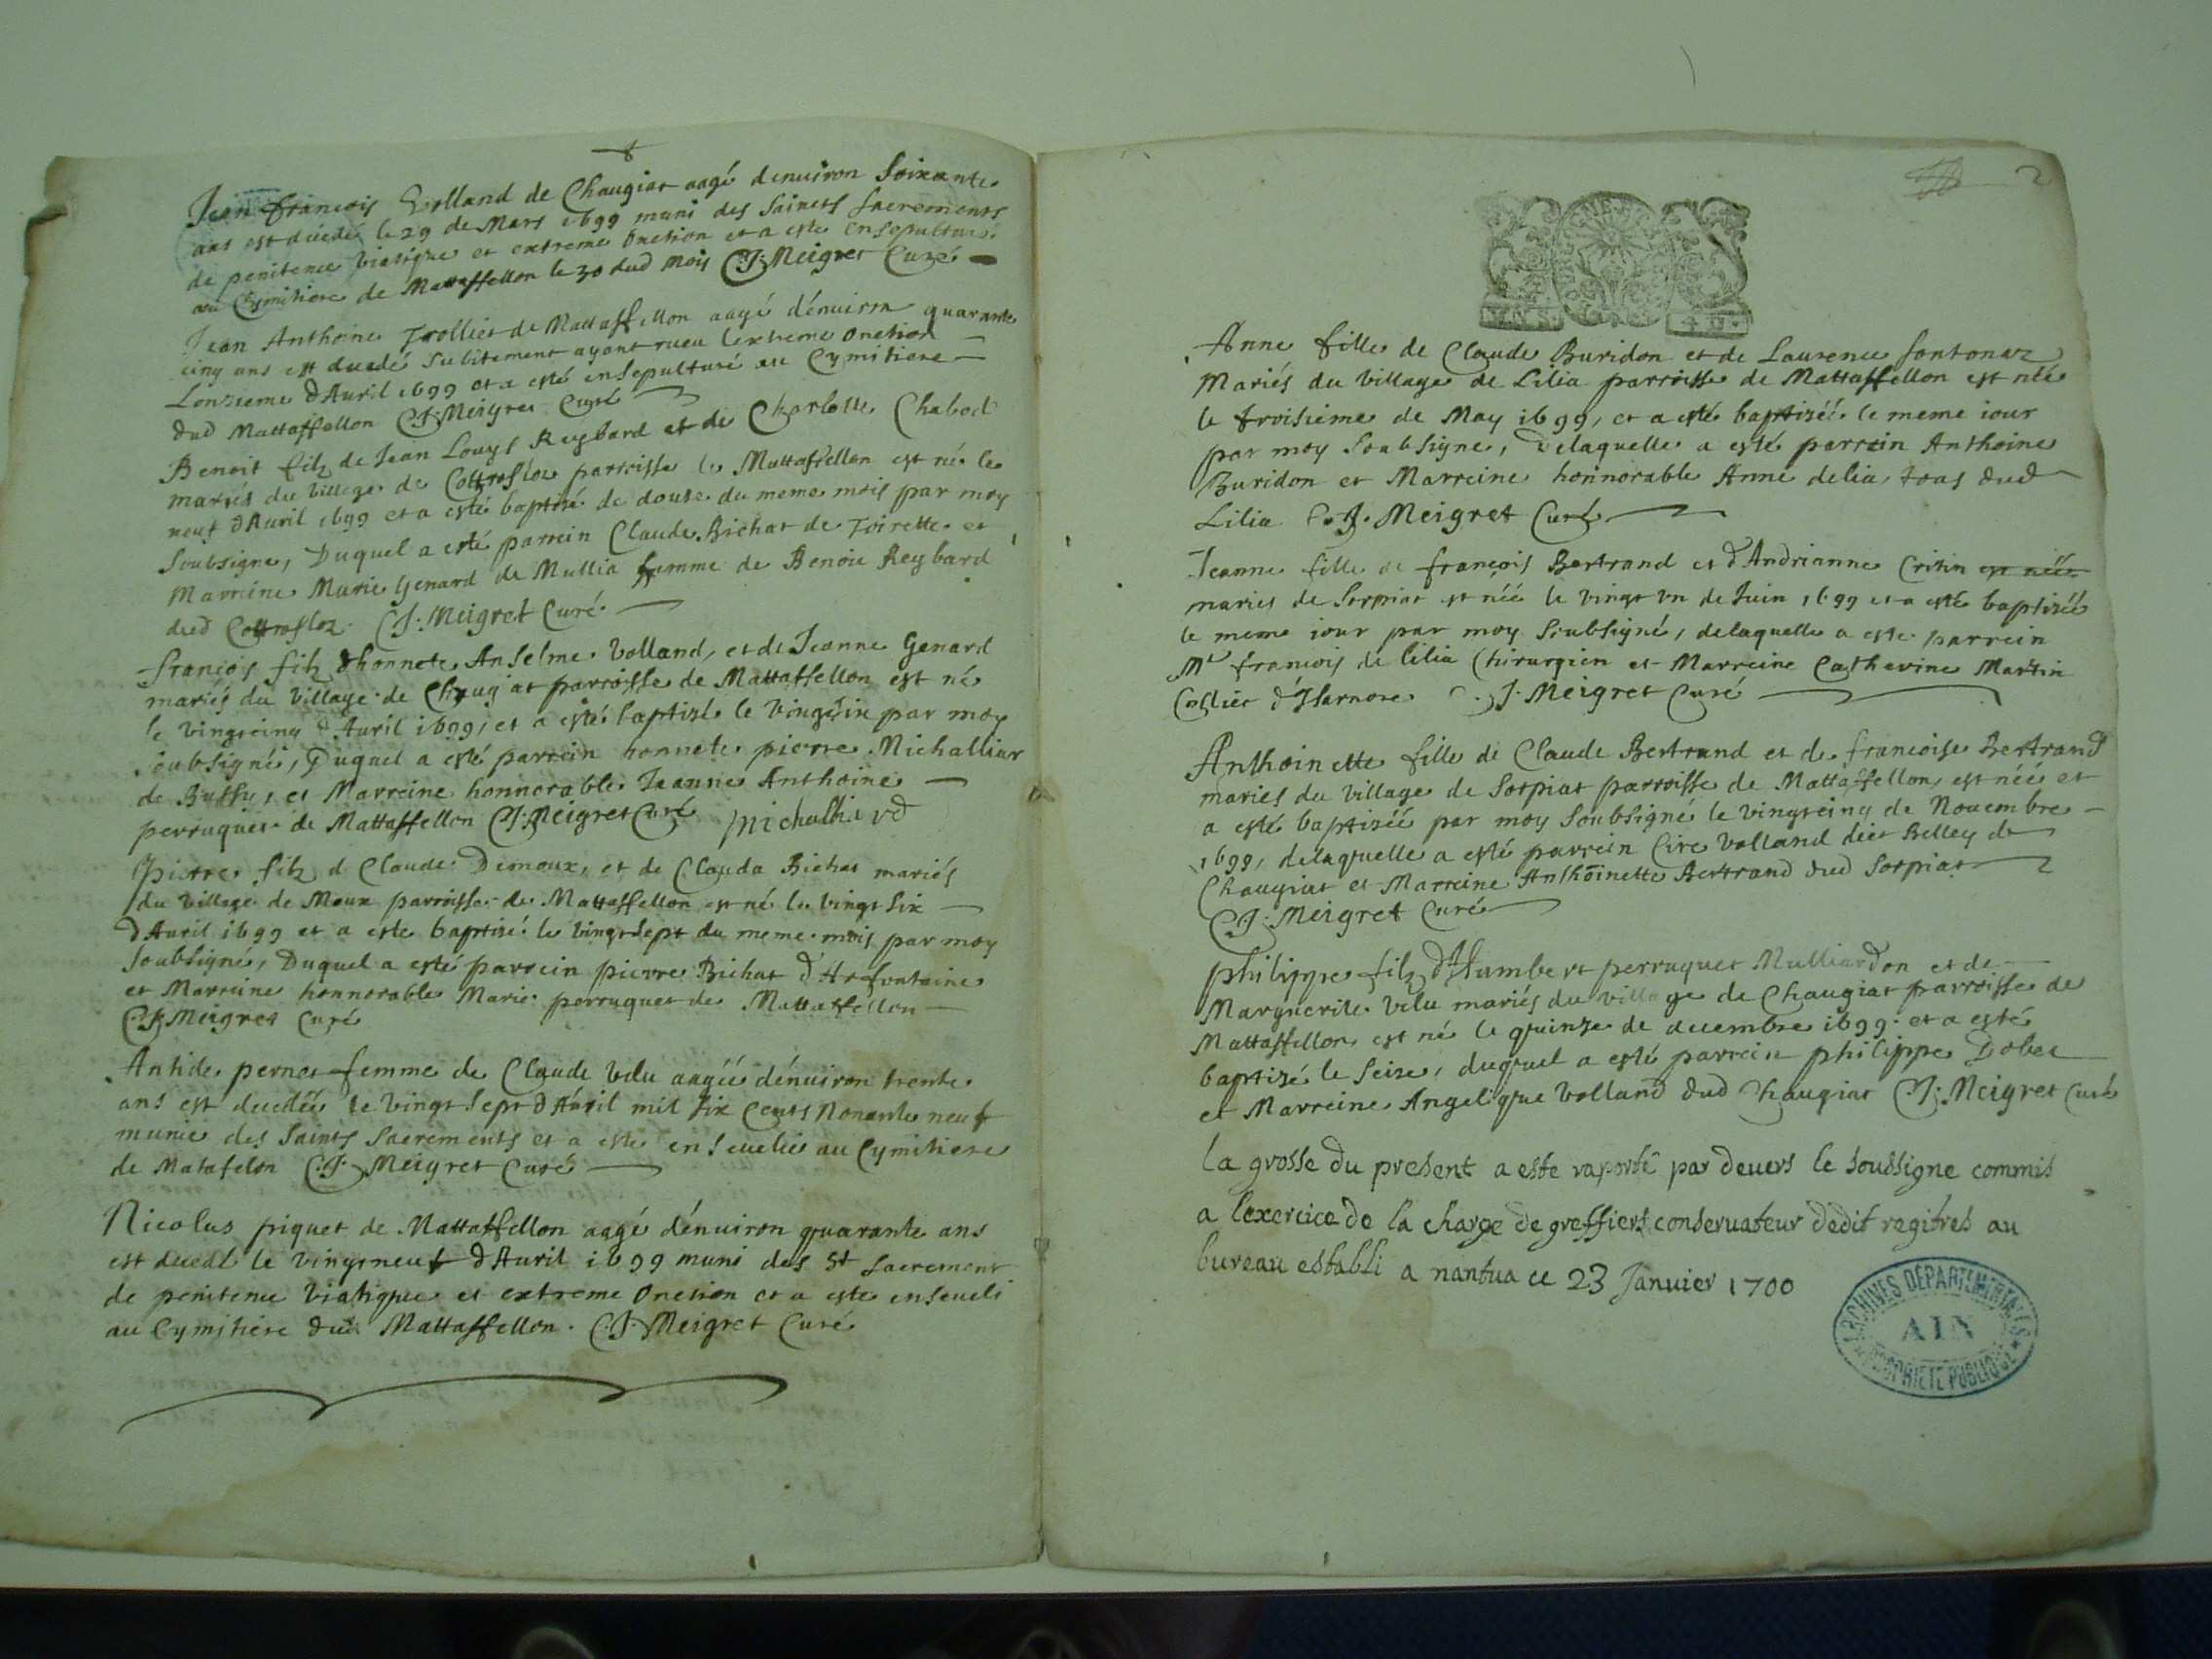 Jean francois Volland de Chaugiat aagé denuiron soixante
ans est décédé le 29 de Mars 1699 muni des Saincts Sacrements
de penitence viatique et extreme onction et a esté ensepulturé
au Cymitiere de Mattaffellon le 30 dud mois C.J. Meigret Curé
Jean Anthoine Trollier de Mattaffellon aagé dénuiron quarante
cinq ans est decedé subitement ayant receu lextreme onction
Lonzieme d'Auril 1699 et a esté ensepulturé au Cymitiere
dud Mattaffellon C.J. Meigret Curé
Benoit filz de Jean Louys Reybard et de Charlotte Chabod
mariés du village de parroisse de Mattafellon est né le
neuf d'Auril 1699 et a esté baptizé le douze du meme mois par moy
soubsigné, Duquel a esté parrein Claude Bichat de Toirette et
Marreine Marie Genard de Mullia femme de Benoit Reybard
dud C.J. Meigret Curé
francois filz d'honnete Anselme Volland, et de Jeanne Genard
mariés du village de Chaugiat parroisse de Mattaffellon est né
le vingtcinq d'Auril 1699, et a esté baptizé le vingtsix par moy
soubsigné, Duquel a esté parrein honnete pierre Michalliar
de Bussy, et Marreine honnorable Jeanne Anthoine
perruquet de Mattaffellon C.J. Meigret Curé Michalliard
Pierre filz d Claude Demoux, et de Clauda Bichat mariés
du village de Moux parroisse de Mattaffellon est né le vingt six
d'Auril 1699 et a esté baptizé le vingtsept du meme mois par moy
soubsigné, Duquel a esté parrein pierre Bichat d'Arfontaine
et Marreine honnorable Marie perruquet de Mattaffellon
C.J. Meigret Curé
Antide pernet femme de Claude Velu aagéé dénuiron trente
ans est decedéé le vingt sept d'Auril mil six Cents Nonante neuf
munie des saints Sacrements et a esté enseuelie au Cymitiere
de Matafelon C.J. Meigret Curé
Nicolas piquet de Mattaffellon aagé dénuiron quarante ans
est decedé le vingtneuf d'Auril 1699 muni des St Sacrement
de penitence viatique et extreme onction et a esté enseueli
au Cymitiere dud Mattaffellon. C.J. Meigret Curé
2
Anne fille de Claude Buridon et de Laurence fontonaz
Mariés du village de Lilia parroisse de Mattaffellon est néé
le troisieme de May 1699, et a esté baptizéé le meme iour
par moy soubsigné, Delaquelle a esté parrein Anthoine
Buridon et Marreine honnorable Anne delia, tous dud
Lilia C.J. Meigret Curé
Jeanne fille de francois Bertrand et d'Andrianne Critin est néé
mariés de Sorpiat est néé le vingt vn de Juin 1699 et a esté baptizéé
le meme iour par moy soubsigné, delaquelle a esté parrein
Mr francois de lilia Chirurgien et Marreine Catherine Martin
d'Isarnore C.J. Meigret Curé
Anthoinette fille de Claude Bertrand et de francoise Bertrand
mariés du village de Sorpiat parroisse de Mattaffellon, est néé et
a esté baptizéé par moy soubsigné le vingtcinq de Nouembre
1699, delaquelle a esté parrein Cire Volland dict Belley de
Chaugiat et Marreine Anthoinette Bertrand dud Sorpiat
C.J. Meigret Curé
Philippe filz d'Humbert perruquet Mulliardon et de
Marguerite Velu mariés du village de Chaugiat parroisse de
Mattaffellon, est né le quinze de decembre 1699. et a esté
baptizé le seize, duquel a esté parrein philippe Dobet
et Marreine Angelique Volland dud Chaugiat C.J. Meigret Curé
la grosse du present a esté raporté par deuers le soussigne commis
a lexercice de la charge de greffiers conseruateur dedit regitres au
bureau establi a nantua ce 23 Januier 1700
ARCHIVES DÉPARTEMENTALES
AIN
PROPRIÉTÉ PUBLIQUE